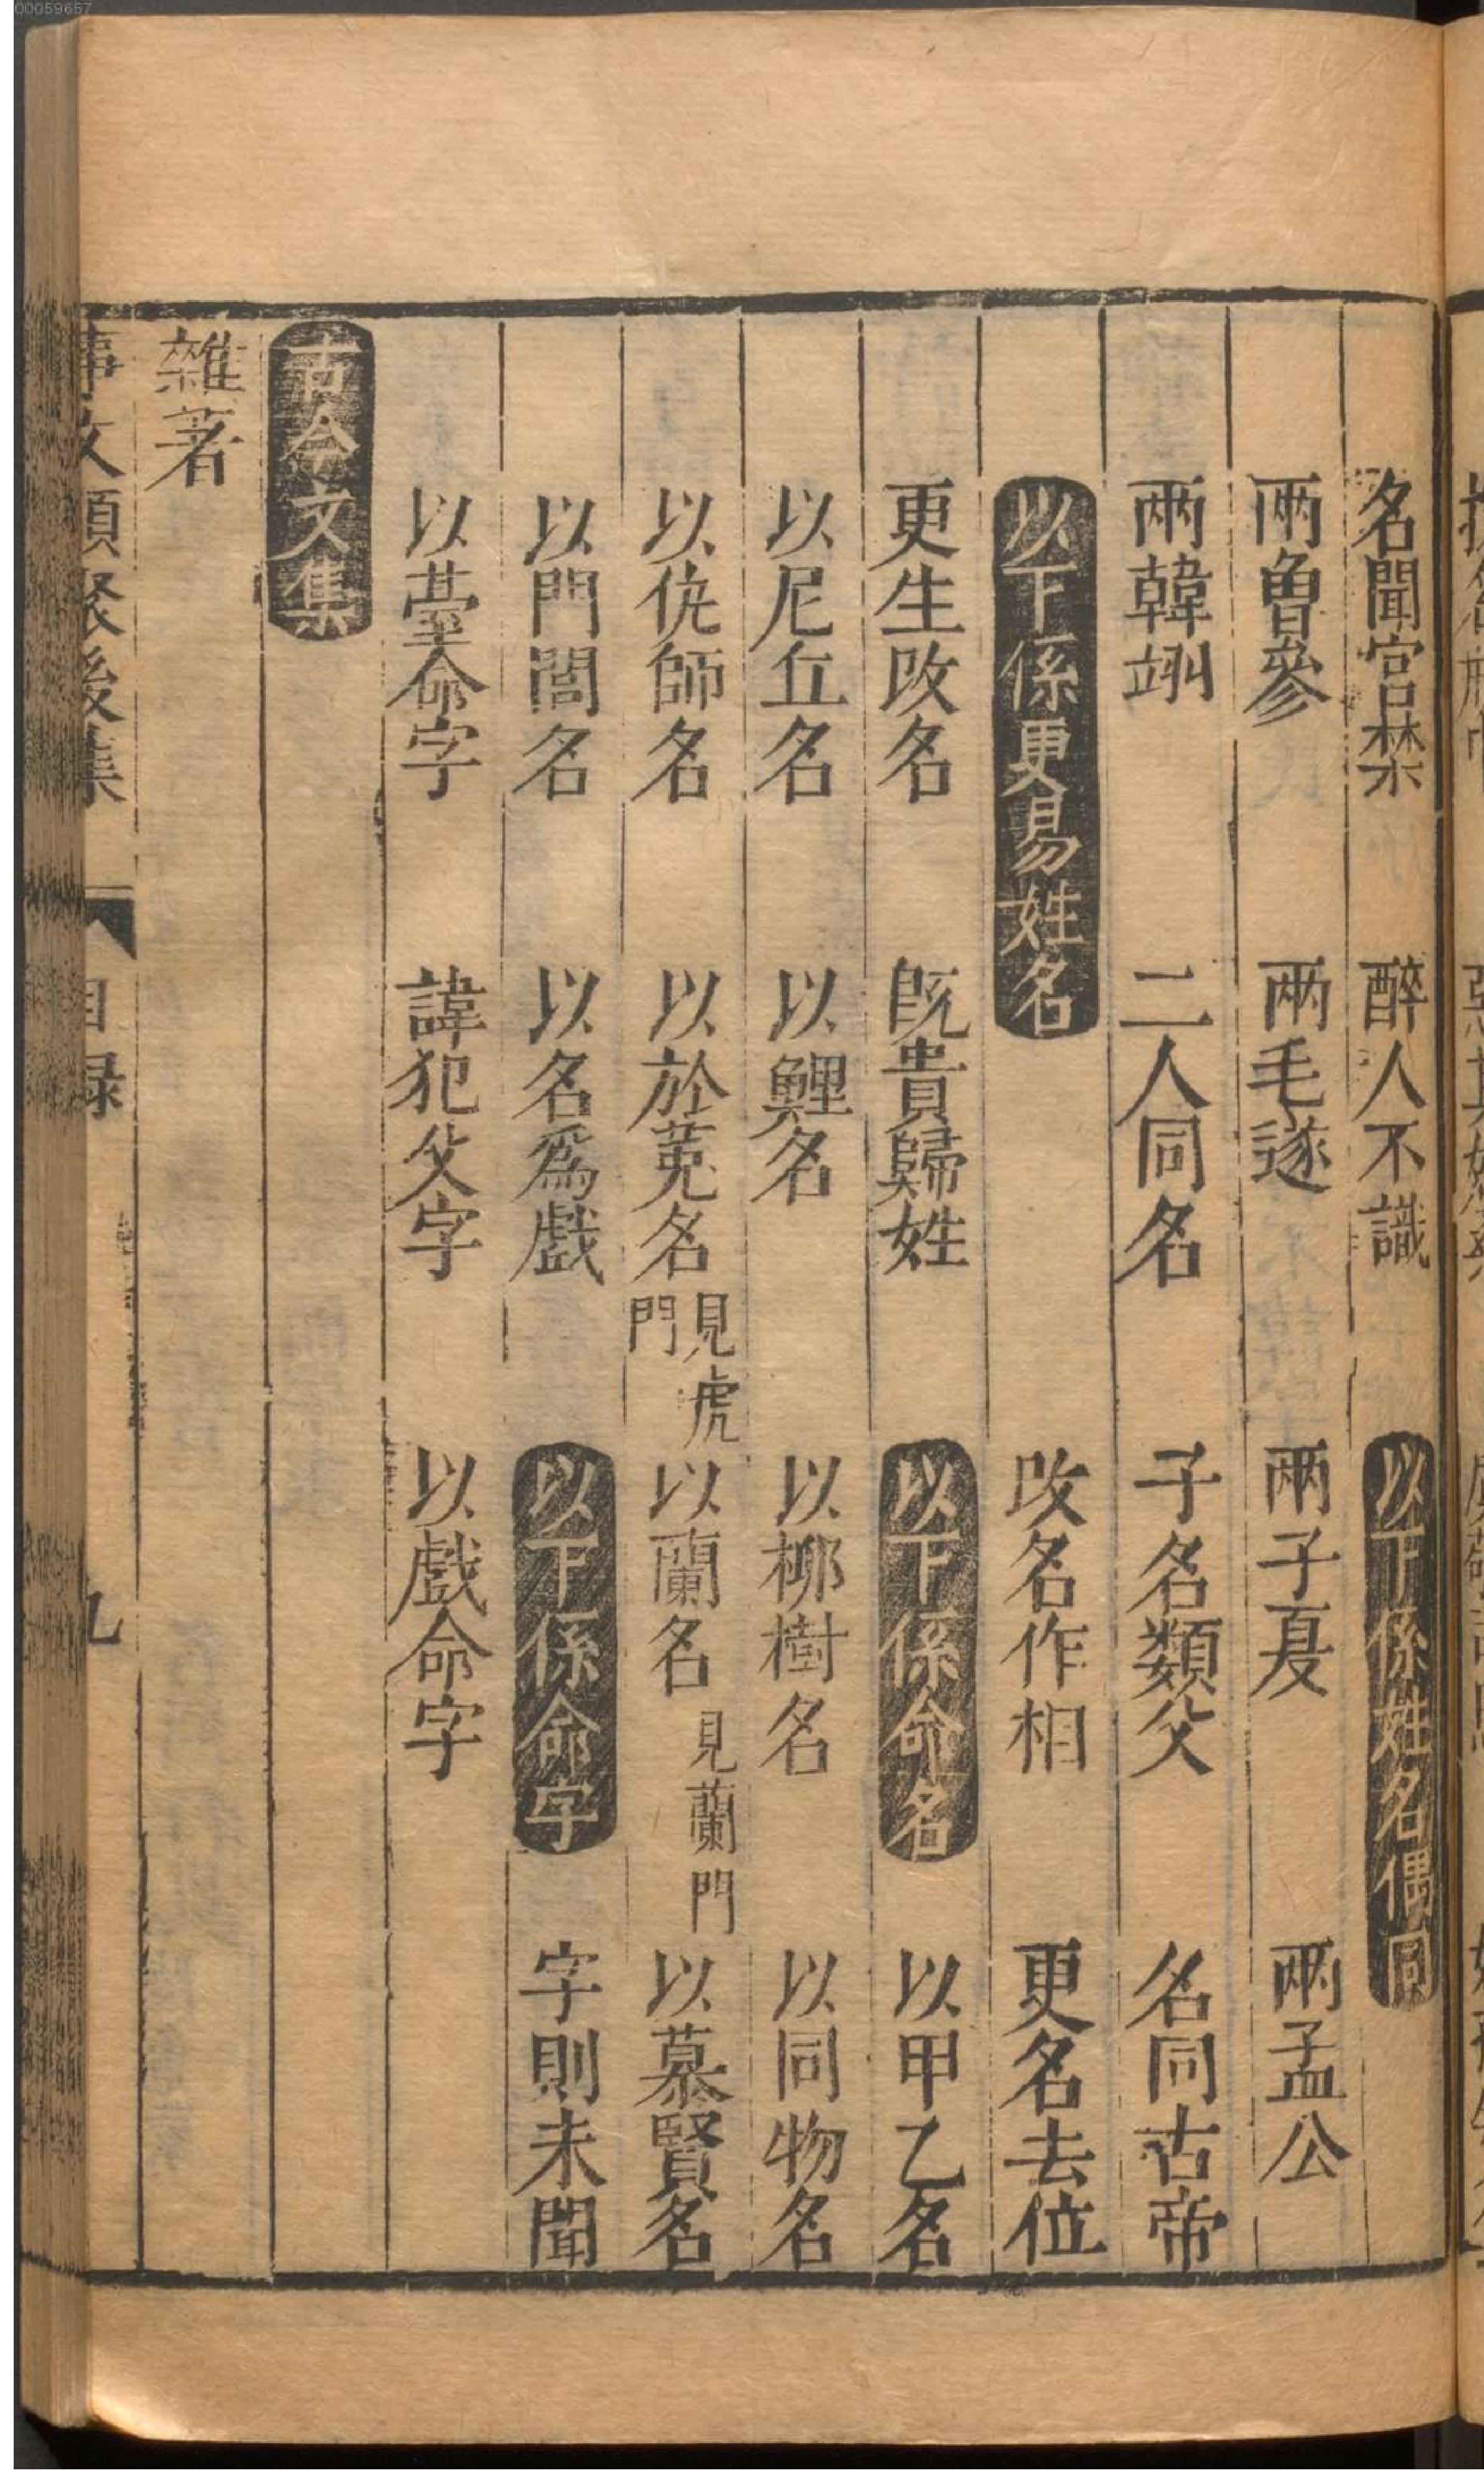 00059657
名聞宫禁　醉人不識　以下係姓名偶同
兩曽參　兩毛遂　兩子夏　兩孟公
兩韓翊　二人同名　子名類父　名同古帝
以下係更易姓名　改名作相　更名去位
更生改名　旣貴歸姓　以下係命名　以甲乙名
以尼丘名　以鯉名　以栁樹名　以同物名
以侁師名　以於莵名見虎門　以蘭名見蘭門　以慕賢名
以門閭名　以名爲戲　以下係命字　字則未聞
以䑓命字　諱犯父字　以戲命字
古今文集
雜著
事文類聚後集　目録　九